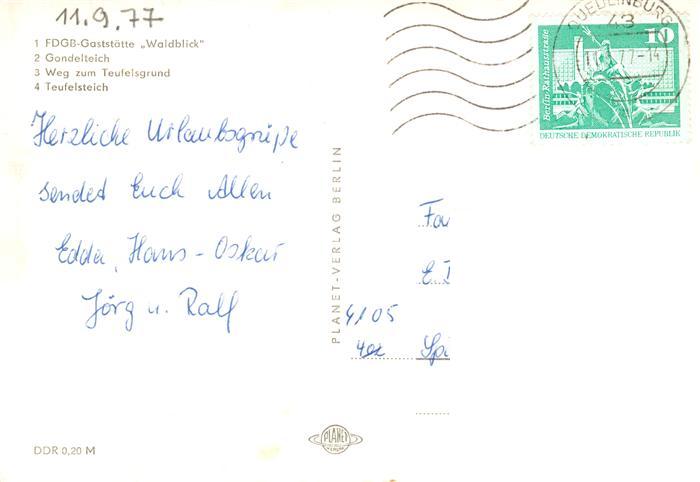 11.9.77
1 FDGB-Gaststätte „Waldblick"
2 Gondelteich
3 Weg zum Teufelsgrund
4 Teufelsteich
Herzliche Urlaubsgrüße
sendet Euch Allen
Edda, Hans-Oskar
Jörg u. Ralf
DDR 0,20 M
PLANET-VERLAG BERLIN
PLANET
VERLAG
QUEDLINBURG
43
77-14
10
Berlin-Rathausstraße
DEUTSCHE DEMOKRATISCHE REPUBLIK
Fa
E.
4105
Spi